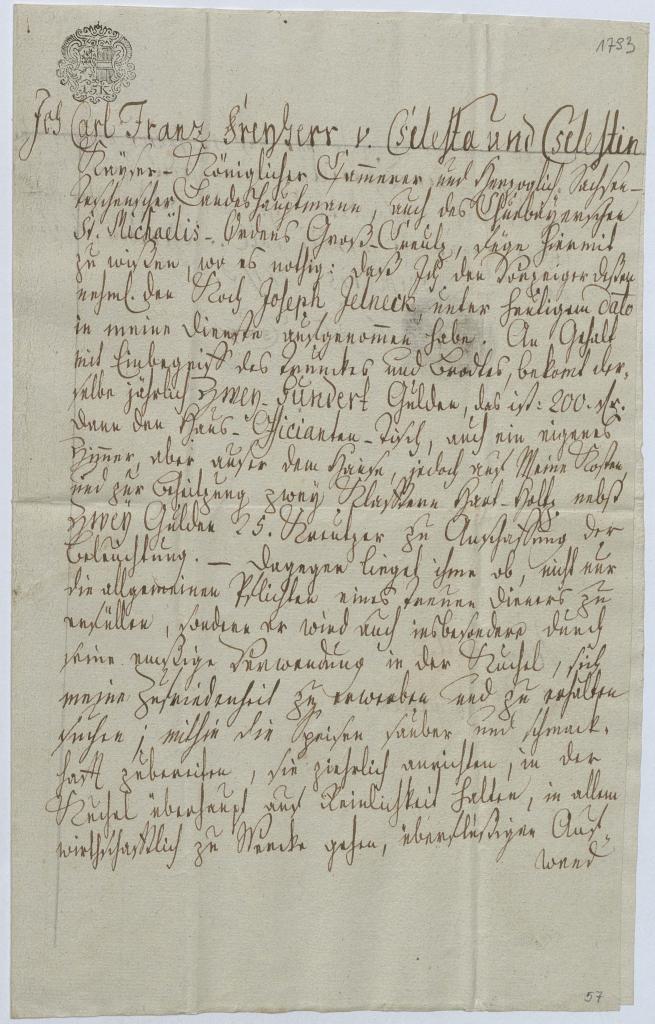 1793
15K
Ich Carl Franz Freyherr v. Cselesta und Cselestin
Kayser-Königlicher Cammerer und Herzoglich Sachsen-
Teschenscher Landeshauptmann, auch des Churbayerschen
St. Michaëlis-Ordens Groß-Creutz, füge hiermit
zu wißen, wo es nöthig: daß Ich den Vorzeiger dießen
nehml. den Koch Joseph Jelneck unter heutigem Dato
in meine Dienste aufgenommen habe. An Gehalt
mit Einbegriff des Trunckes und Brodtes, bekomt der-
selbe jährlich Zwey-Hundert Gulden, das ist: 200. fl.
dann den Haus-Officianten-Tisch, auch ein eigenes
Zimmer, aber außer dem Hause, jedoch auf Meine Kosten
und zur Beheitzung zwey Klafftern Hart-Holtz nebst
Zwey Gulden 25. Kreutzer zu Anschaffung der
Beleuchtung. — Dagegen lieget ihme ob, nicht nur
die allgemeinen Pflichten eines treuen Dieners zu
erfüllen, sondern er wird auch insbesondere durch
seine emsige Verwendung in der Kuchel, sich
meine Zufriedenheit zu erwerben und zu erhalten
suchen; mithin die Speisen sauber und schmack-
hafft zubereiten, sie ziehrlich anrichten, in der
Kuchel überhaupt auf Reinlichkeit halten, in allem
wirthschafftlich zu Wercke gehen, überflüßigen Auf-
wand
57